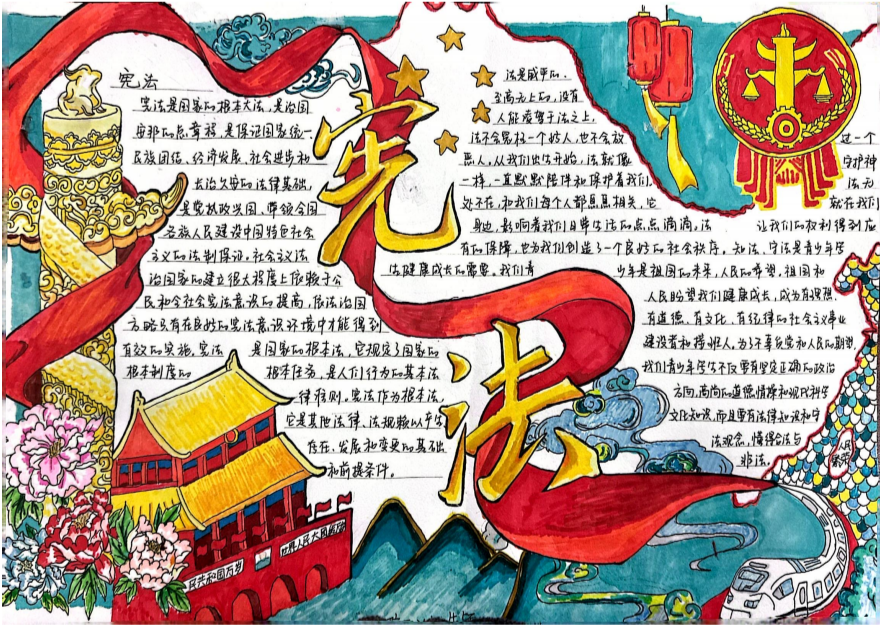 宪法
宪法
宪法是国家的根本大法，是治国
安邦的总章程，是保证国家统一、
民族团结、经济发展、社会进步和
长治久安的法律基础，
是党执政兴国、带领全国
各族人民建设中国特色社会
主义的法制保证。社会主义法
治国家的建立很大程度上依赖于公
民和全社会宪法意识的提高，依法治国
方略只有在良好的宪法意识环境中才能得到
有效的实施。宪法 是国家的根本法，它规定了国家的
根本制度的 根本任务，是人们行为的基本法
律准则。宪法作为根本法，
它是其他法律、法规赖以产生
存在、发展和变更的基础
和前提条件。
法是威严的、
至高无上的，没有
人能凌驾于法之上，
法不会冤枉一个好人，也不会放 过一个
恶人，从我们出生开始，法就像 守护神
一样，一直默默陪伴和保护着我们。 法无
处不在，和我们每个人都息息相关，它 就在我们
身边，影响着我们日常生活的点点滴滴，法 让我们的权利得到应
有的保障，也为我们创造了一个良好的社会秩序。知法、守法是青少年学
法健康成长的需要，我们青 少年是祖国的未来，人民的希望，祖国和
人民盼望我们健康成长，成为有理想、
有道德、有文化、有纪律的社会主义事业
建设者和接班人，为了不辜负党和人民的期望，
我们青少年学生不仅要有坚定正确的政治
方向，高尚的道德情操和现代科学
文化知识，而且要有法律知识和守
法观念，懂得合法与
非法。
人民
民共和国万岁
世界人民大团结